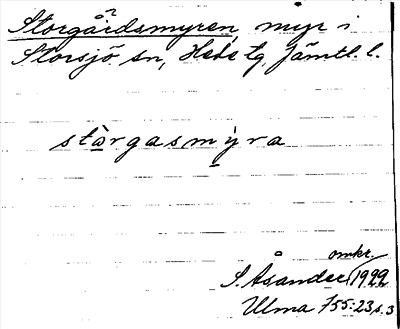 Storgårdsmyren, myr i
Storsjö sn, Hede tg, Jämtl. l.
stòrgasmỳra
omkr.
S. Åsander 1922
Ulma 755:23, s. 3